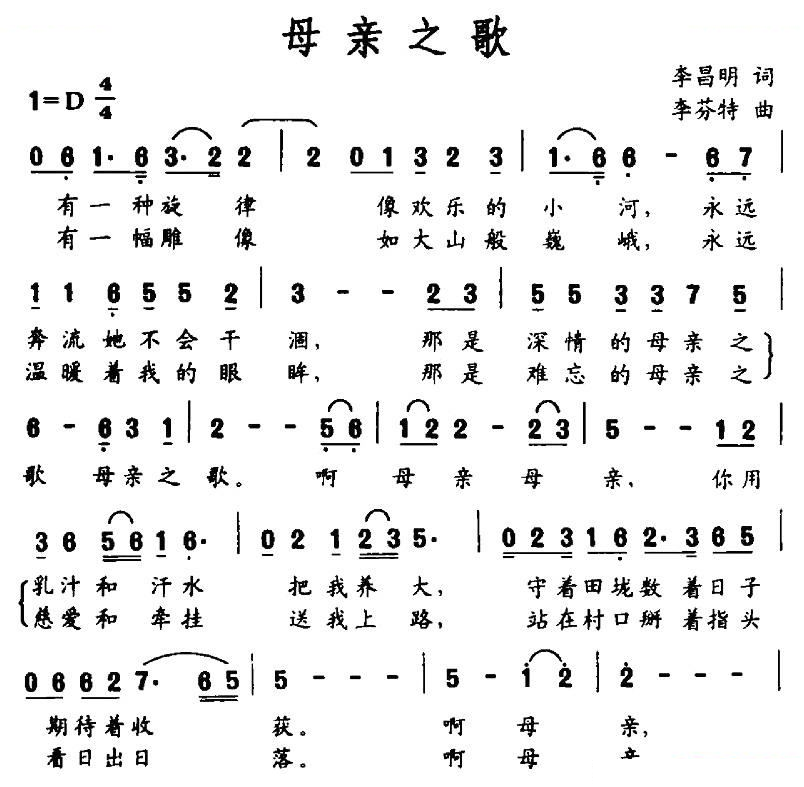 母亲之歌
李昌明 词
1=D 4/4
李芬特 曲
0 6 1· 6 3· 2 2 | 2 0 1 3 2 3 | 1· 6 6 - 6 7 |
有一种旋律 像欢乐的小河, 永远
有一幅雕像 如大山般巍峨, 永远
1 1 6 5 5 2 | 3 - - 2 3 | 5 5 3 3 7 5 |
奔流她不会干涸, 那是深情的母亲之
温暖着我的眼眸, 那是难忘的母亲之
6 - 6 3 1 | 2 - - 5 6 | 1 2 2 - 2 3 | 5 - - 1 2 |
歌 母亲之歌。 啊母亲母亲, 你用
3 6 5 6 1 6· | 0 2 1 2 3 5· | 0 2 3 1 6 2· 3 6 5 |
乳汁和汗水 把我养大, 守着田垅数着日子
慈爱和牵挂 送我上路, 站在村口掰着指头
0 6 6 6 2 7· 6 5 | 5 - - - | 5 - 1 2 | 2 - - - |
期待着收获。 啊母亲,
看日出日落。 啊母